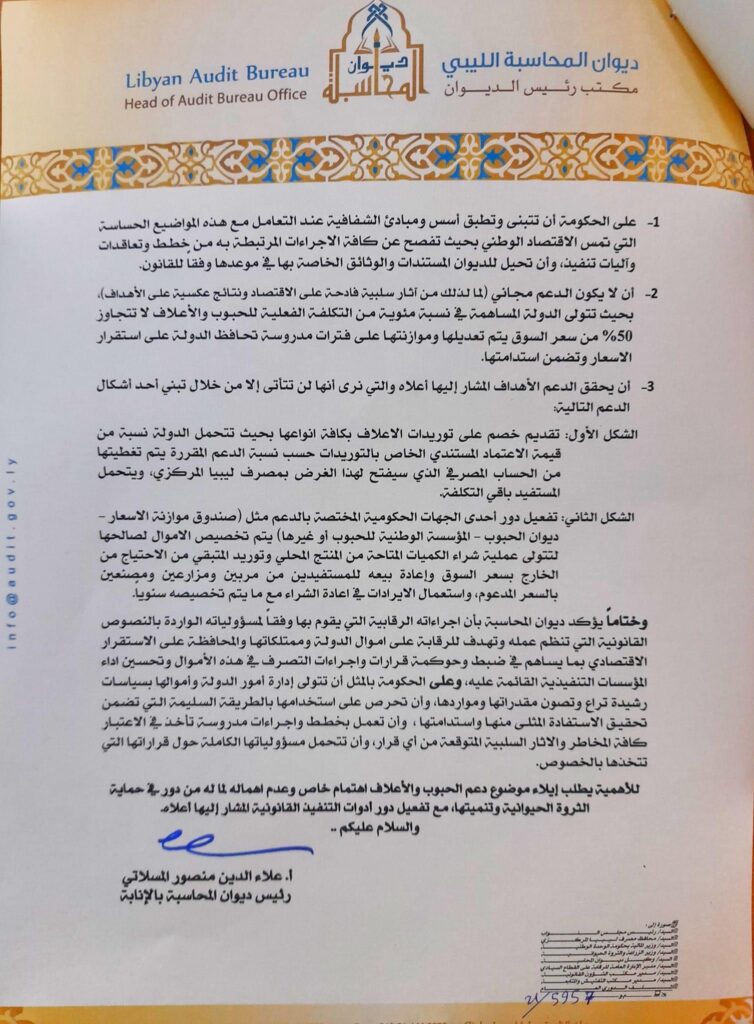 ديوان المحاسبة الليبي
مكتب رئيس الديوان
ديوان
المحاسبة
Libyan Audit Bureau
Head of Audit Bureau Office
1- على الحكومة أن تتبنى وتطبق أسس ومبادئ الشفافية عند التعامل مع هذه المواضيع الحساسة
التي تمس الاقتصاد الوطني بحيث تفصح عن كافة الاجراءات المرتبطة به من خطط وتعاقدات
وآليات تنفيذ، وأن تحيل للديوان المستندات والوثائق الخاصة بها في موعدها وفقا للقانون.
2- أن لا يكون الدعم مجاني (لما لذلك من آثار سلبية فادحة على الاقتصاد ونتائج عكسية على الأهداف)،
بحيث تتولى الدولة المساهمة في نسبة مئوية من التكلفة الفعلية للحبوب والأعلاف لا تتجاوز
50% من سعر السوق يتم تعديلها وموازنتها على فترات مدروسة تحافظ الدولة على استقرار
الاسعار وتضمن استدامتها.
3- أن يحقق الدعم الأهداف المشار إليها أعلاه والتي نرى أنها لن تتأتى إلا من خلال تبني أحد أشكال
الدعم التالية:
الشكل الأول: تقديم خصم على توريدات الاعلاف بكافة انواعها بحيث تتحمل الدولة نسبة من
قيمة الاعتماد المستندي الخاص بالتوريدات حسب نسبة الدعم المقررة يتم تغطيتها
من الحساب المصرفي الذي سيفتح لهذا الغرض بمصرف ليبيا المركزي، ويتحمل
المستفيد باقي التكلفة.
الشكل الثاني: تفعيل دور أحدى الجهات الحكومية المختصة بالدعم مثل (صندوق موازنة الاسعار –
ديوان الحبوب – المؤسسة الوطنية للحبوب أو غيرها) يتم تخصيص الاموال لصالحها
لتتولى عملية شراء الكميات المتاحة من المنتج المحلي وتوريد المتبقي من الاحتياج من
الخارج بسعر السوق وإعادة بيعه للمستفيدين من مربين ومزارعين ومصنعين
بالسعر المدعوم، واستعمال الايرادات في اعادة الشراء مع ما يتم تخصيصه سنويا.
وختاماً يؤكد ديوان المحاسبة بأن اجراءاته الرقابية التي يقوم بها وفقاً لمسؤولياته الواردة بالنصوص
القانونية التي تنظم عمله وتهدف للرقابة على اموال الدولة وممتلكاتها والمحافظة على الاستقرار
الاقتصادي بما يساهم في ضبط وحوكمة قرارات واجراءات التصرف في هذه الأموال وتحسين اداء
المؤسسات التنفيذية القائمة عليه، وعلى الحكومة بالمثل أن تتولى إدارة أمور الدولة وأموالها بسياسات
رشيدة تراع وتصون مقدراتها ومواردها، وأن تحرص على استخدامها بالطريقة السليمة التي تضمن
تحقيق الاستفادة المثلى منها واستدامتها ، وأن تعمل بخطط واجراءات مدروسة تأخذ في الاعتبار
كافة المخاطر والاثار السلبية المتوقعة من أي قرار، وأن تتحمل مسؤولياتها الكاملة حول قراراتها التي
تتخذها بالخصوص.
للأهمية يطلب إيلاء موضوع دعم الحبوب والأعلاف اهتمام خاص وعدم اهماله لما له من دور في حماية
الثروة الحيوانية وتنميتها، مع تفعيل دور أدوات التنفيذ القانونية المشار إليها أعلاه.
والسلام عليكم ..
أ. علاء الدين منصور المسلاتي
رئيس ديوان المحاسبة بالإنابة
صورة إلى:
السيد/ رئيس مجلس النواب
السيد/ محافظ مصرف ليبيا المركزي
السيد/ وزير المالية بحكومة الوحدة الوطنية
السيد/ وزير الزراعة والثروة الحيوانية
السيد/ وكيل ديوان المحاسبة
السيد/ مدير الإدارة العامة للرقابة على القطاع السيادي
السيد/ مدير مكتب الشؤون القانونية
السيد/ مدير مكتب التفتيش والمتابعة
الملف الدوري العام
21/5957
info@audit.gov.ly